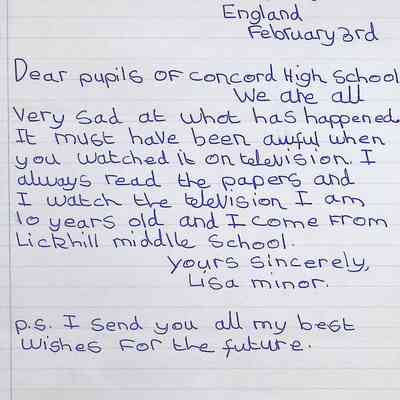 England
February 3rd
Dear pupils of Concord High School
We are all
very sad at what has happened.
It must have been awful when
you watched it on television. I
always read the papers and
I watch the television I am
10 years old and I come from
Lickhill middle school.
Yours sincerely,
Lisa minor.
p.s. I send you all my best
wishes for the future.